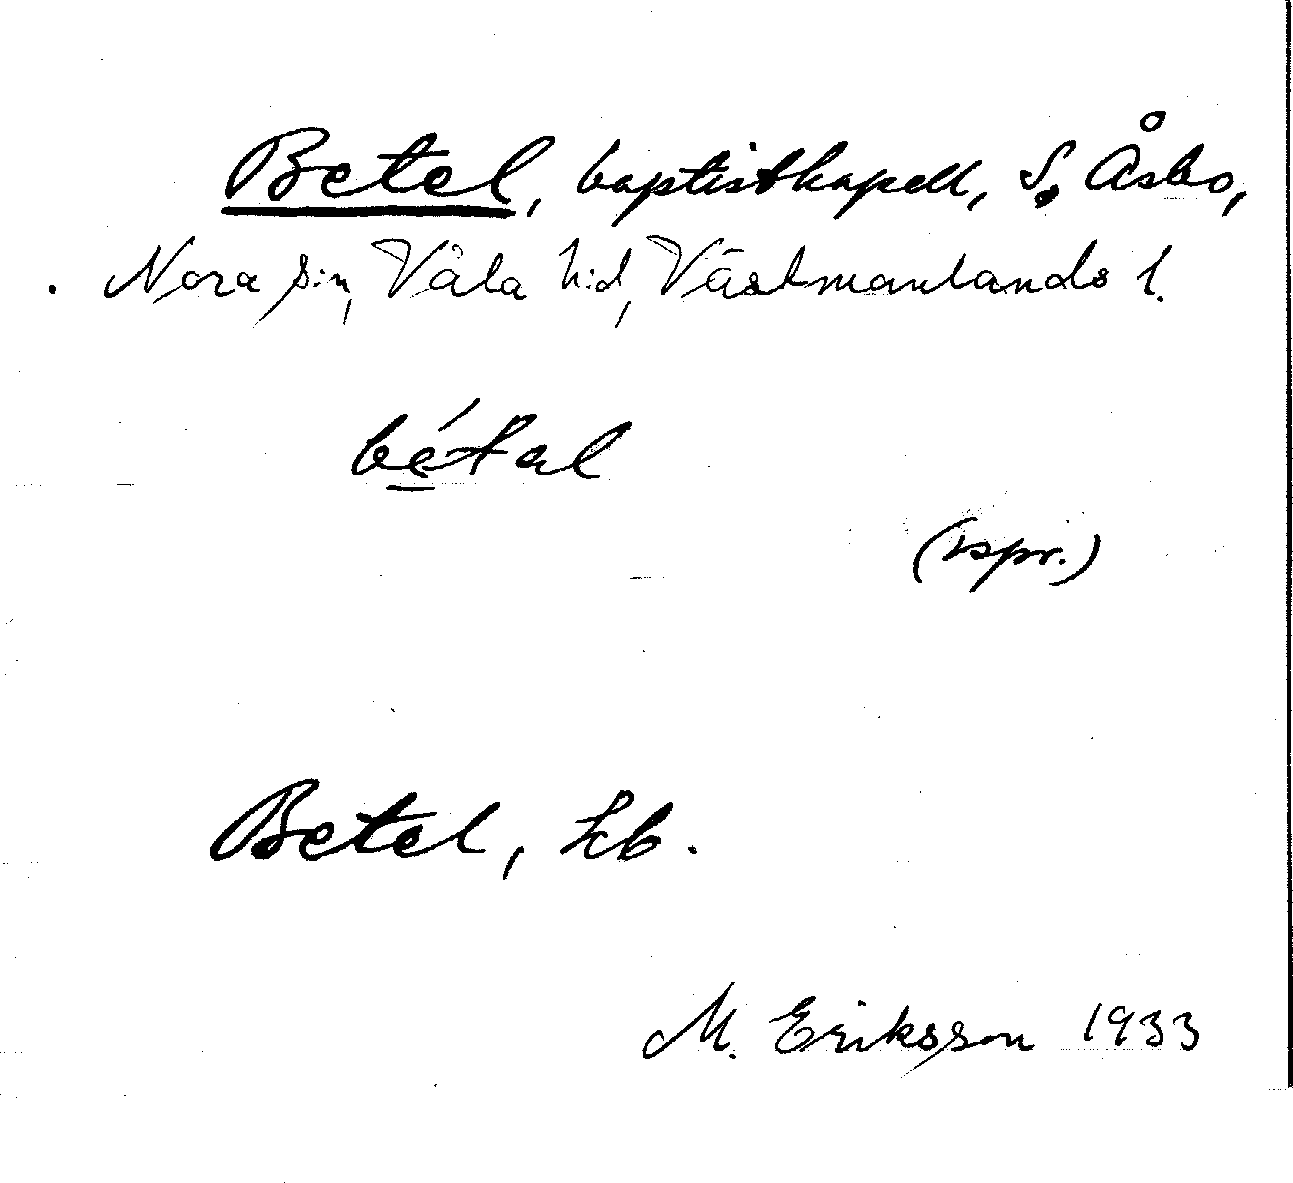 Betel, baptistkapell, S. Åsbo,
Nora s:n, Våla h:d, Västmanlands l.
bétal
(rspr.)
Betel, kb.
M. Eriksson 1933